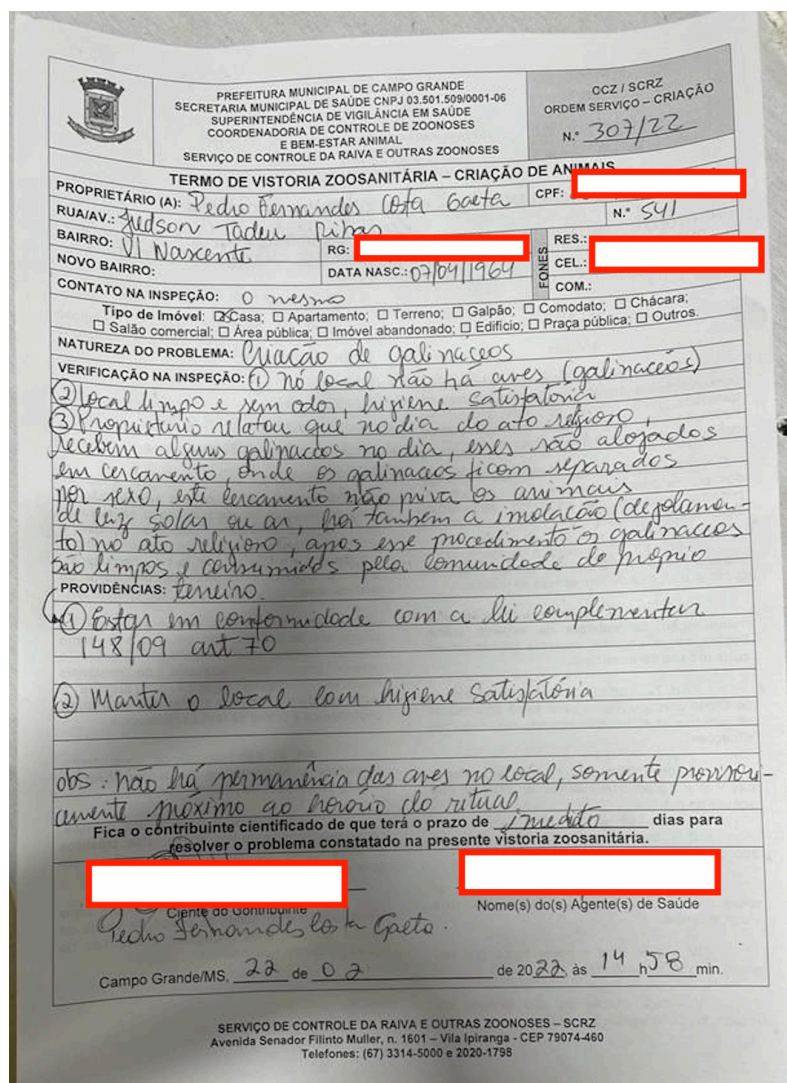 PREFEITURA MUNICIPAL DE CAMPO GRANDE
SECRETARIA MUNICIPAL DE SAÚDE CNPJ 03.501.509/0001-06
SUPERINTENDÊNCIA DE VIGILÂNCIA EM SAÚDE
COORDENADORIA DE CONTROLE DE ZOONOSES
E BEM-ESTAR ANIMAL
SERVIÇO DE CONTROLE DA RAIVA E OUTRAS ZOONOSES
CCZ / SCRZ
ORDEM SERVIÇO – CRIAÇÃO
N.° 307/22
TERMO DE VISTORIA ZOOSANITÁRIA – CRIAÇÃO DE ANIMAIS
PROPRIETÁRIO (A): Pedro Fernandes Costa Gaeta CPF:
RUA/AV.: Judson Tadeu Ribas N.° 541
BAIRRO: Vl Nascente RG: FONES RES.:
NOVO BAIRRO: DATA NASC.: 07/04/1964 CEL.:
CONTATO NA INSPEÇÃO: O mesmo COM.:
Tipo de Imóvel: ☒ Casa; ☐ Apartamento; ☐ Terreno; ☐ Galpão; ☐ Comodato; ☐ Chácara;
☐ Salão comercial; ☐ Área pública; ☐ Imóvel abandonado; ☐ Edifício; ☐ Praça pública; ☐ Outros.
NATUREZA DO PROBLEMA: Criação de galináceos
VERIFICAÇÃO NA INSPEÇÃO: ① nó local não há aves (galinaceós)
② Local limpo e sem odor, higiene satisfatória
③ Proprietário relatou que no dia do ato religioso,
recebem alguns galinaceos no dia, esses são alojados
em cercamento, onde os galinaceos ficam separados
por sexo, este cercamento não priva os animais
de luz solar ou ar, há também a imolação (degolamen-
to) no ato religioso, apos esse procedimento os galinaceos
são limpos e consumidos pela comunidade do próprio
PROVIDÊNCIAS: terreiro.
① Estar em conformidade com a lei complementar
148/09 art 70
② Manter o local com higiene satisfatória
obs: não há permanência das aves no local, somente provisori-
amente próximo ao horário do ritual.
Fica o contribuinte cientificado de que terá o prazo de imediato dias para
resolver o problema constatado na presente vistoria zoosanitária.
Ciente do Contribuinte
Nome(s) do(s) Agente(s) de Saúde
Pedro Fernandes Costa Gaeta.
Campo Grande/MS, 22 de 02 de 2022, às 14 h 58 min.
SERVIÇO DE CONTROLE DA RAIVA E OUTRAS ZOONOSES – SCRZ
Avenida Senador Filinto Muller, n. 1601 – Vila Ipiranga - CEP 79074-460
Telefones: (67) 3314-5000 e 2020-1798